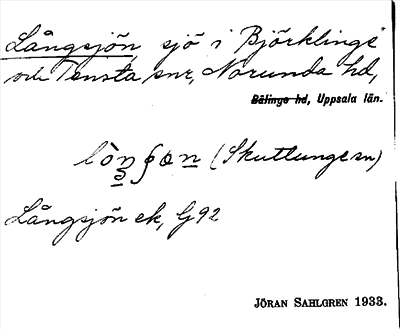 Långsjön, sjö i Björklinge
och Tensta snr, Norunda hd,
Bälinge hd, Uppsala län.
(Skutlunge sn)
Långsjön ek, G92
JÖRAN SAHLGREN 1933.